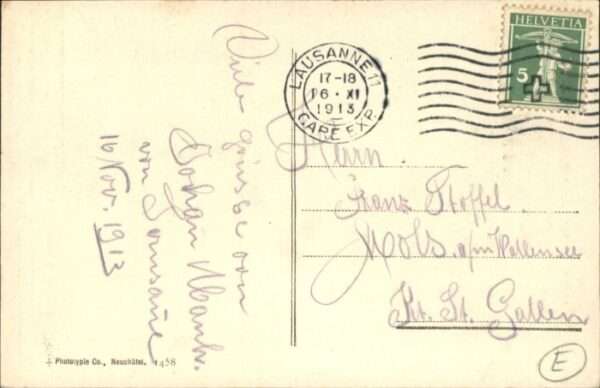 Viele grüsse von
Johan
von Lousane
16 Nov. 1913
LAUSANNE 11
17-18
16 · XI
1913
GARE EXP.
HELVETIA
5
Herrn
Franz Stoffel
Mols a/m Wallensee
Kt. St. Gallen
E
Phototypie Co., Neuchâtel. 1458